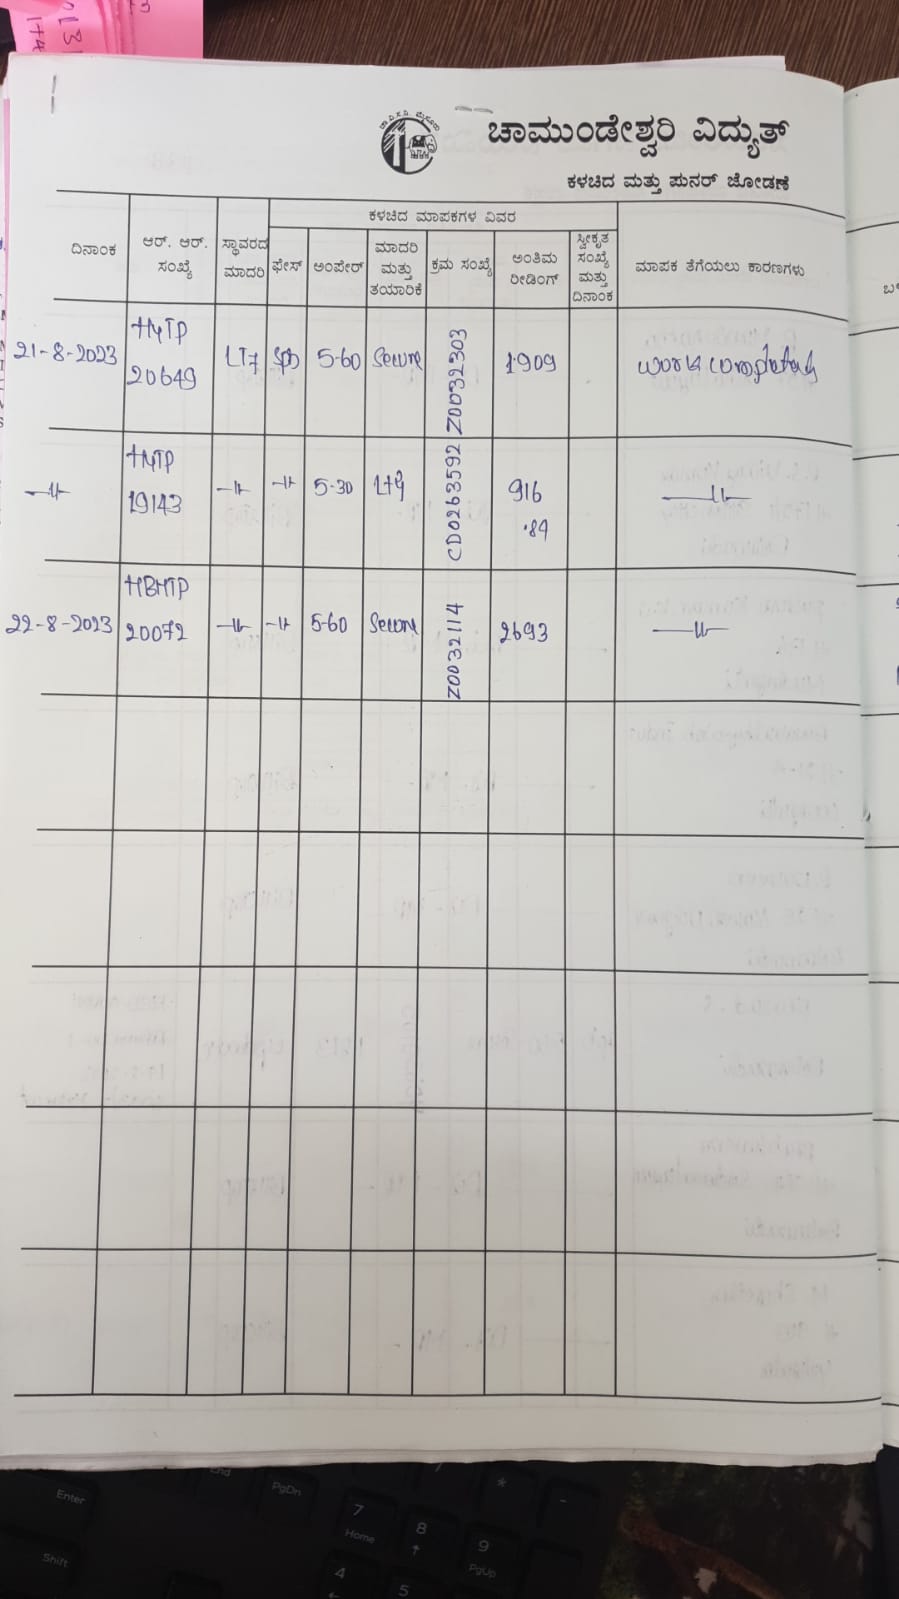 ಚಾಮುಂಡೇಶ್ವರಿ ವಿದ್ಯುತ್
ಕಳಚಿದ ಮತ್ತು ಪುನರ್ ಜೋಡಣೆ
ಕಳಚಿದ ಮಾಪಕಗಳ ವಿವರ
ದಿನಾಂಕ
ಆರ್. ಆರ್.
ಸಂಖ್ಯೆ
ಸ್ಥಾವರದ
ಮಾದರಿ
ಫೇಸ್
ಅಂಪೇರ್
ಮಾದರಿ
ಮತ್ತು
ತಯಾರಿಕೆ
ಕ್ರಮ ಸಂಖ್ಯೆ
ಅಂತಿಮ
ರೀಡಿಂಗ್
ಸ್ವೀಕೃತ
ಸಂಖ್ಯೆ
ಮತ್ತು
ದಿನಾಂಕ
ಮಾಪಕ ತೆಗೆಯಲು ಕಾರಣಗಳು
21-8-2023
20649
LT7
5-60
Secure
Z0032303
1.909
work completed
19143
5-30
CD0263592
916
.89
22-8-2023
20072
5-60
Secure
Z0032114
2693
Enter
Shift
PgDn
7
Home
8
9
PgUp
4
5
*
-